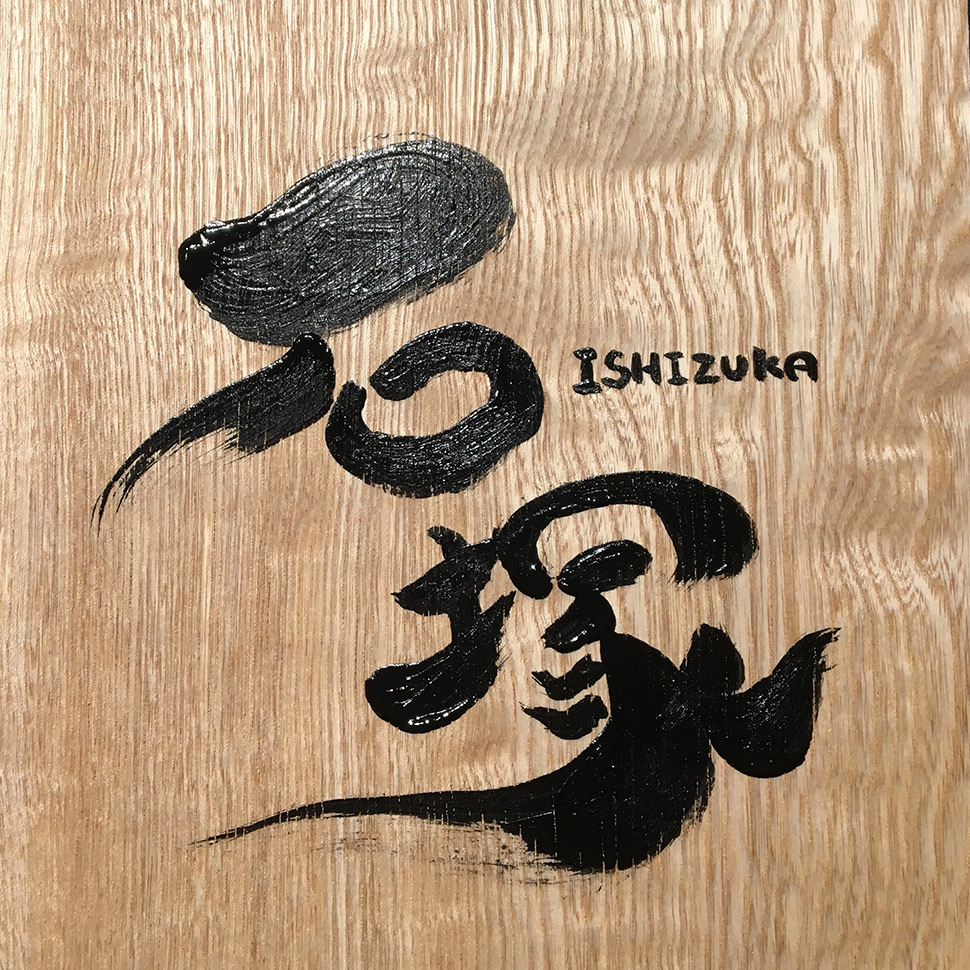 石
ISHIZUKA
塚